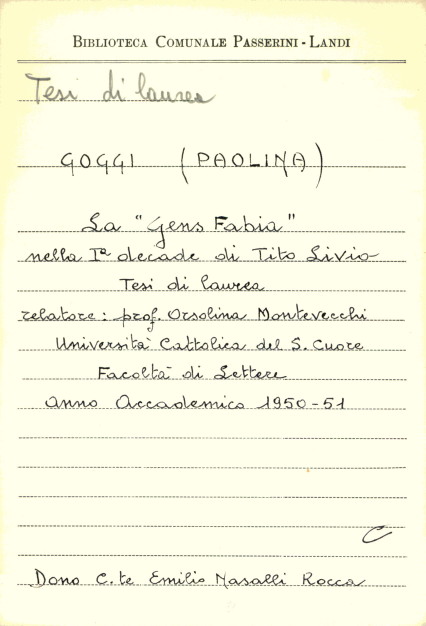 BIBLIOTECA COMUNALE PASSERINI - LANDI
Tesi di laurea
GOGGI (PAOLINA)
La "Gens Fabia"
nella Iª decade di Tito Livio
Tesi di laurea
relatore: prof. Orsolina Montevecchi
Università Cattolica del S. Cuore
Facoltà di Lettere
Anno Accademico 1950-51
C
Dono C.te Emilio Nasalli Rocca